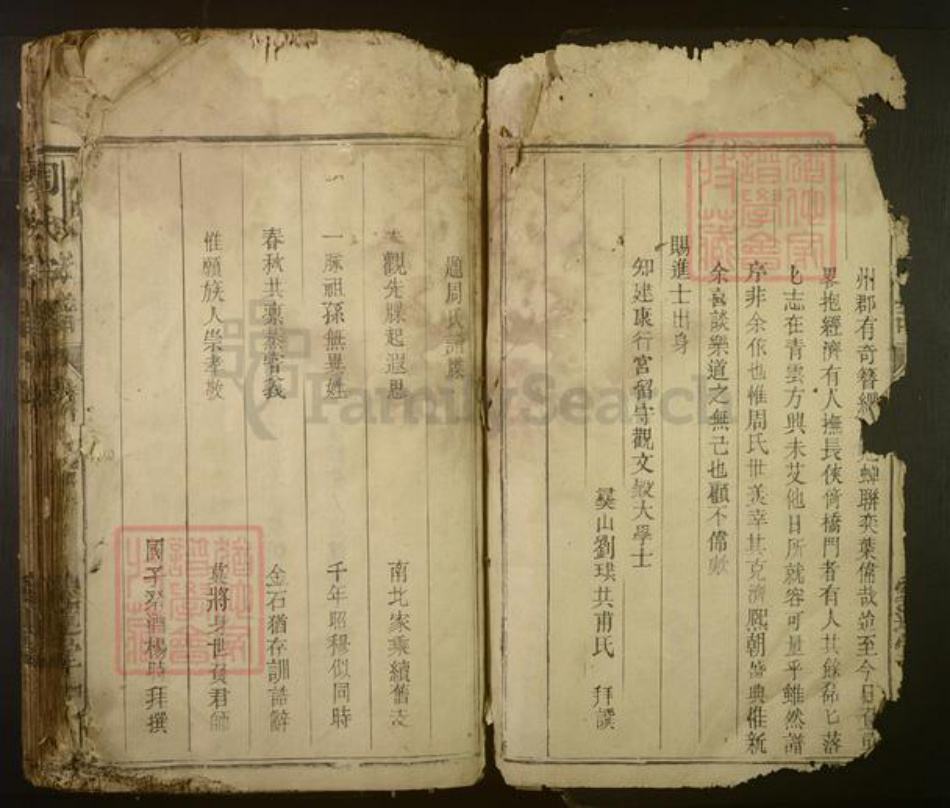 州郡有奇簪纓 蟬聯奕葉偉哉迨至今日
畧抱經濟有人撫長俠倚橋門者有人其餘磊匕落
匕志在青雲方興未艾他日所就容可量乎雖然譜
序非余作也惟周氏世羨幸其克濟熙朝盛典惟新
余喜談樂道之無已也顧不偉歟
賜進士出身
知建康行宮留守觀文殿大學士
劉珙共甫氏 拜譔
題周氏譜牒
觀先牒起遐思 南北家乘續舊支
一脉祖孫無異姓 千年昭穆似同時
春秋共稟蒸嘗義 金石猶存訓誥辭
惟願族人崇孝敬 莫將身世負君師
國子祭酒楊時拜撰
FamilySearch